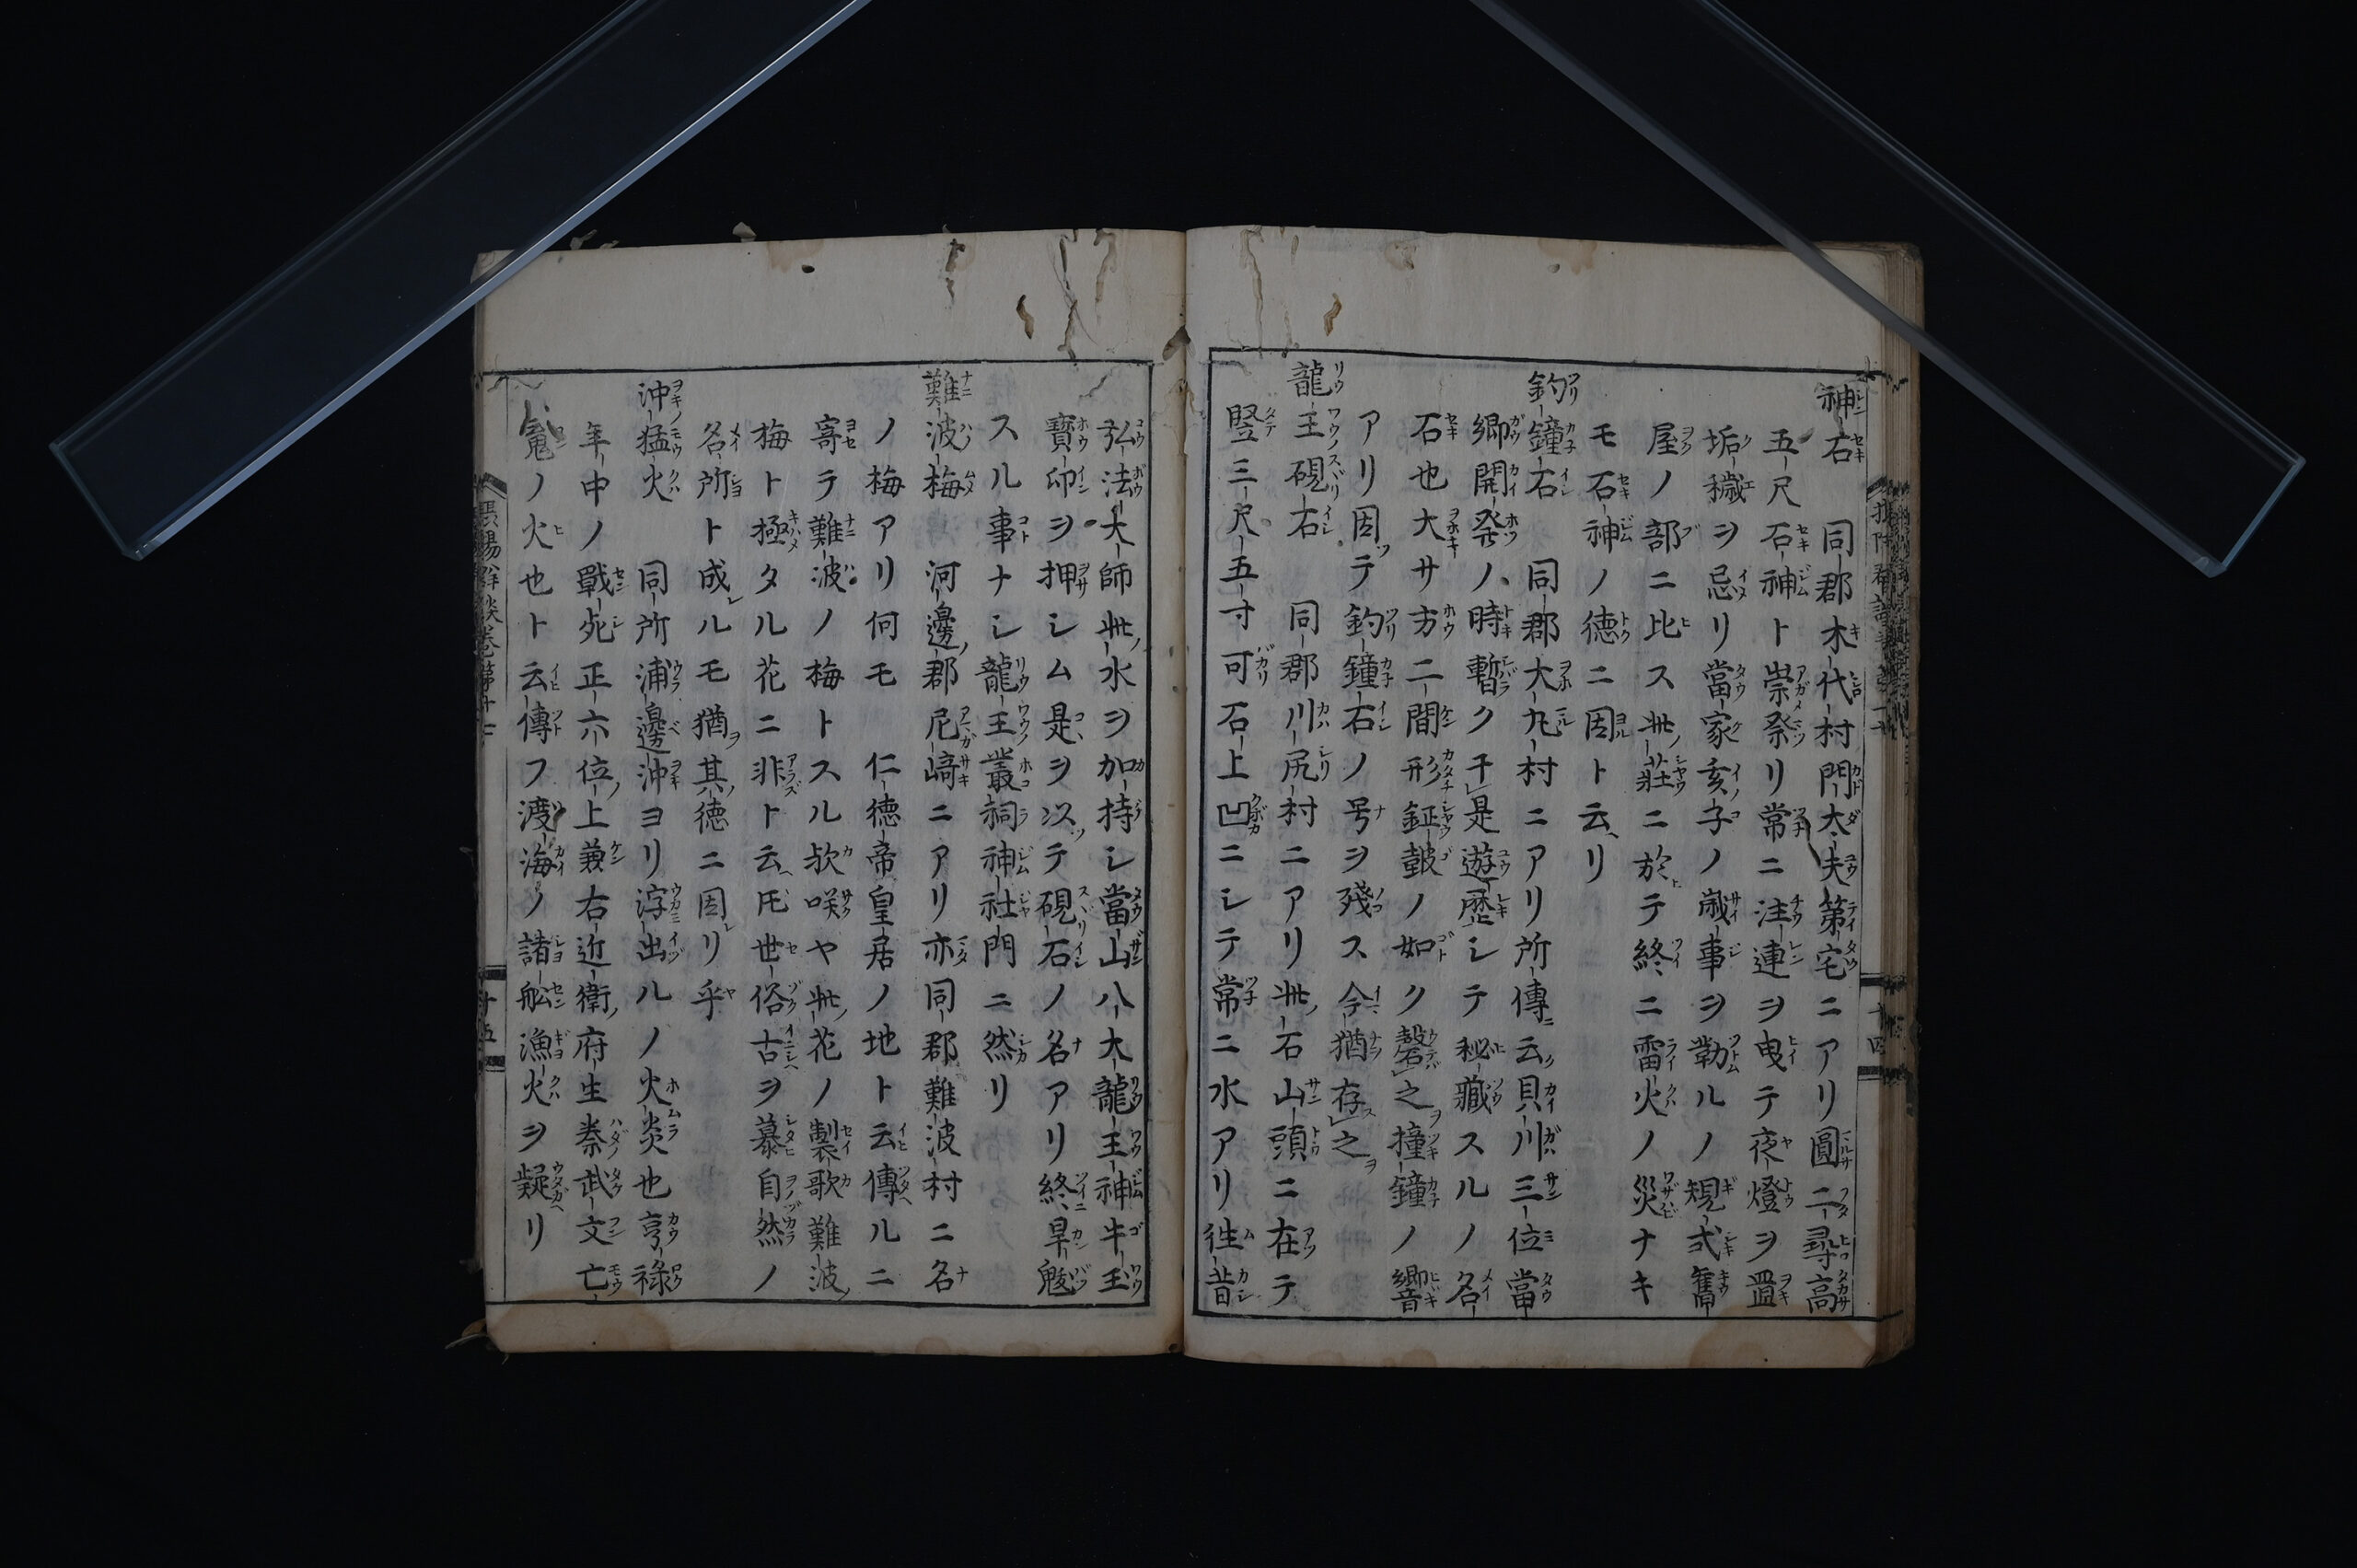 神石　同郡木代村門大夫第宅ニアリ圓二尋高
五尺石神ト崇祭リ常ニ注連ヲ曳テ夜燈ヲ置
垢穢ヲ忌リ當家亥子ノ歳事ヲ勤ルノ規式舊
屋ノ部ニ比ス此莊ニ於テ終ニ雷火ノ災ナキ
モ石神ノ徳ニ因ト云リ
釣鐘石　同郡大丸村ニアリ所傳云貝川三位當
郷開発ノ時暫ク于是遊歴シテ秘藏スルノ名
石也大サ方二間形鉦鼓ノ如ク磬之撞鐘ノ響
アリ因テ釣鐘石ノ号ヲ殘ス今猶存之
龍王硯石　同郡川尻村ニアリ此石山頭ニ在テ
竪三尺五寸可石上凹ニシテ常ニ水アリ往昔
弘法大師此水ヲ加持シ當山八大龍王神牛王
寶印ヲ押シム是ヲ以テ硯石ノ名アリ終旱魃
スル事ナシ龍王叢祠神社門ニ然リ
難波梅　河邊郡尼﨑ニアリ亦同郡難波村ニ名
ノ梅アリ何モ　仁徳帝皇居ノ地ト云傳ルニ
寄テ難波ノ梅トスル歟咲ヤ此花ノ製歌難波
梅ト極タル花ニ非ト云𪜈世俗古ヲ慕自然ノ
名所ト成ルモ猶其徳ニ因リ乎
沖猛火　同所浦邊沖ヨリ浮出ルノ火炎也亨祿
年中ノ戰死正六位上兼右近衛府生秦武文亡
魂ノ火也ト云傳フ渡海ノ諸舩漁火ヲ疑リ
十四
十五